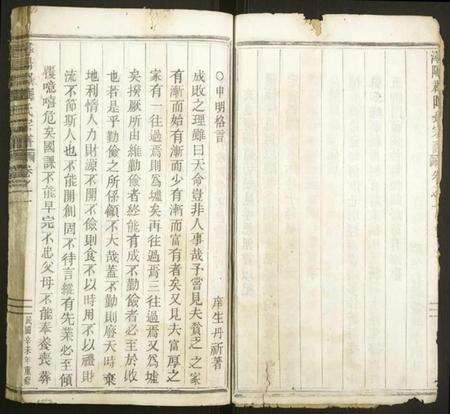 ○申明格言
庠生丹祈著
成敗之理雖曰天命豈非人事哉予嘗見夫貧乏之家
有漸而始有漸而少有漸而富有者矣又見夫富厚之
家有一往過焉則為墟矣再往過焉三往過焉又為墟
矣揆厥所由維勤儉者終能有成不勤儉者必至於敗
也者是乎勤儉之所係顧不大哉蓋不勤則廢天時棄
地利惰人力財源不開不儉則食不以時用不以禮財
流不節斯人也不能開創固不待言縱有先業必至傾
覆噫嘻危矣國課不能早完不忠父母不能奉養喪葬
民國辛未年重修